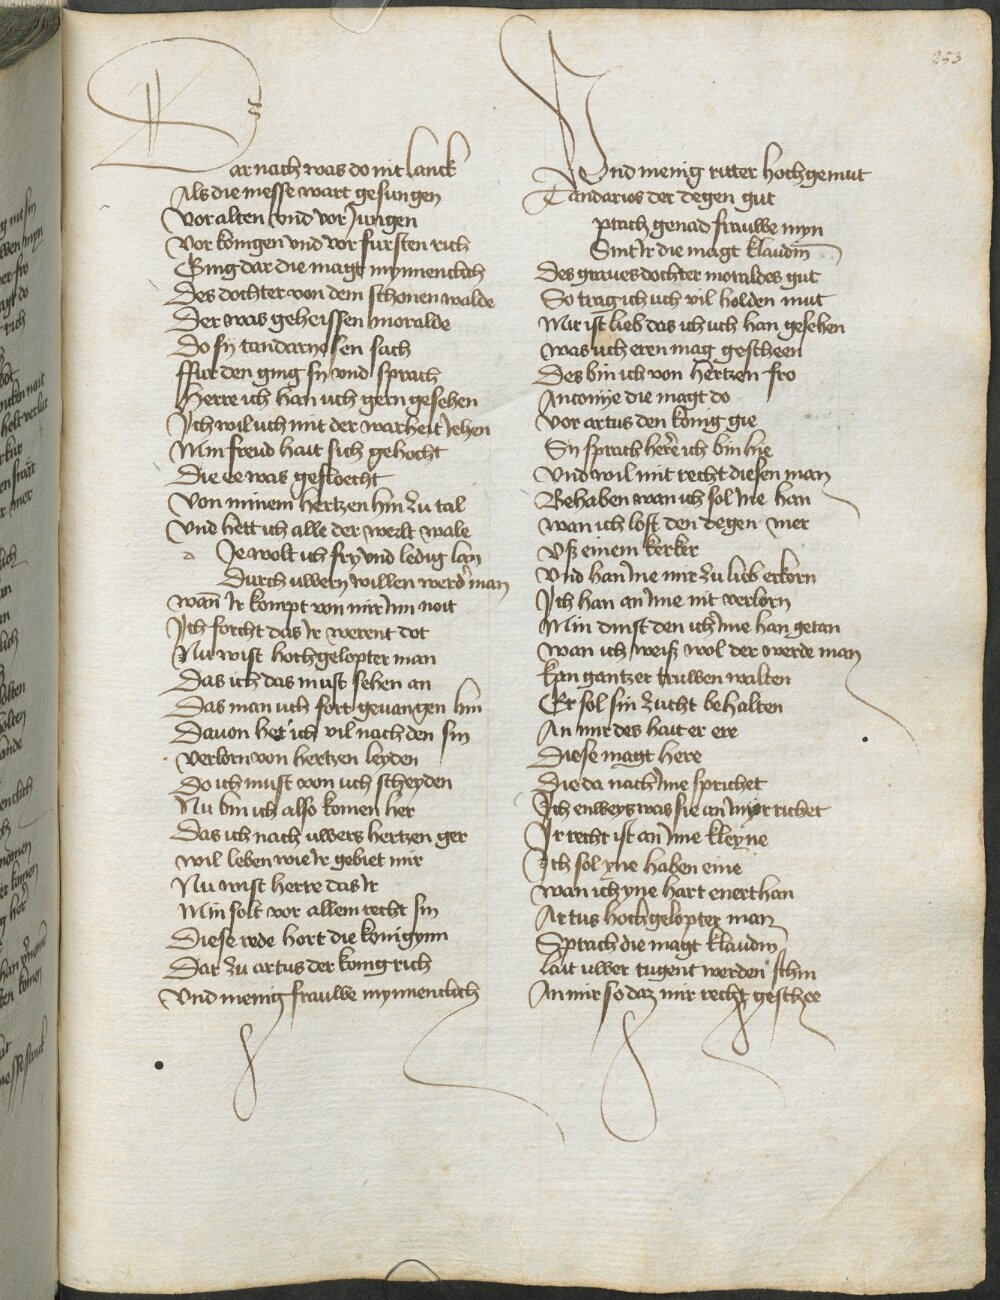 253
Dar nach was do nit lanck
Als die messe wart gesungen
Vor alten vnd vor Jungen
Vor konigen vnd vor fursten rich
Ging dar die magt mynnenclich
Des dochter von dem schonen walde
Der was geheissen moralde
Do sy tandaryosen sach
ffur den ging sy vnd sprach
Herre ich han uch gern gesehen
Ich wil uch mit der warheit Jehen
Min freud hait sich gehocht
Die ee was geflocht
Von minem hertzen hin zu tal
Vnd hett ich alle der welt wale
Je wolt ich fry vnd ledig lan
Durch uwern willen werder man
wann Ir kompt von mir Inn noit
Ich forcht das Ir werent dot
Nu wist hochgelopter man
Das ich das must sehen an
Das man uch fort gevangen hin
Davon het ich vil nach den sin
verlorn von hertzen leyden
do ich must von uch scheyden
Nu bin ich also komen her
Das ich nach uwers hertzen ger
wil leben wie Ir gebiet mir
Nu wist herre das Ir
Min solt vor allem recht sin
Diese rede hort die konigynn
Dar zu artus der konig rich
Vnd menig frauwe mynnenclich
Vnd menig ritter hochgemut
Tandarios der degen gut
sprach genad frauwe myn
Sint Ir die magt klaudin
Des graues dochter moraldes gut
So trag ich uch vil holden mut
Mir ist lieb das ich uch han gesehen
was uch eren mag gescheen
Des bin ich von hertzen fro
Antonye die magt do
Vor artus den konig gie
Sy sprach here ich bin hie
Vnd wil mit recht diesen man
Behaben wan ich sol Ine han
wan ich lost den degen mer
Vß einem kerker
Vnd han Ine mir zu lieb erkorn
Ich han an Ime nit verlorn
Min dinst den ich Ime han getan
wan ich weiß wol der werde man
kan gantzer truwen walten
Er sol sin zucht behalten
An mir des hait er ere
Diese magt here
Die da nach Ime sprichet
Ich enweys was sie an myr richet
Ir recht ist an Ime kleyne
Ich sol yne haben eine
wan ich yne hart enerthan
Artus hochgelopter man
Sprach die magt klaudin
lait uwer tugent werden schin
An mir so daz mir recht geschee